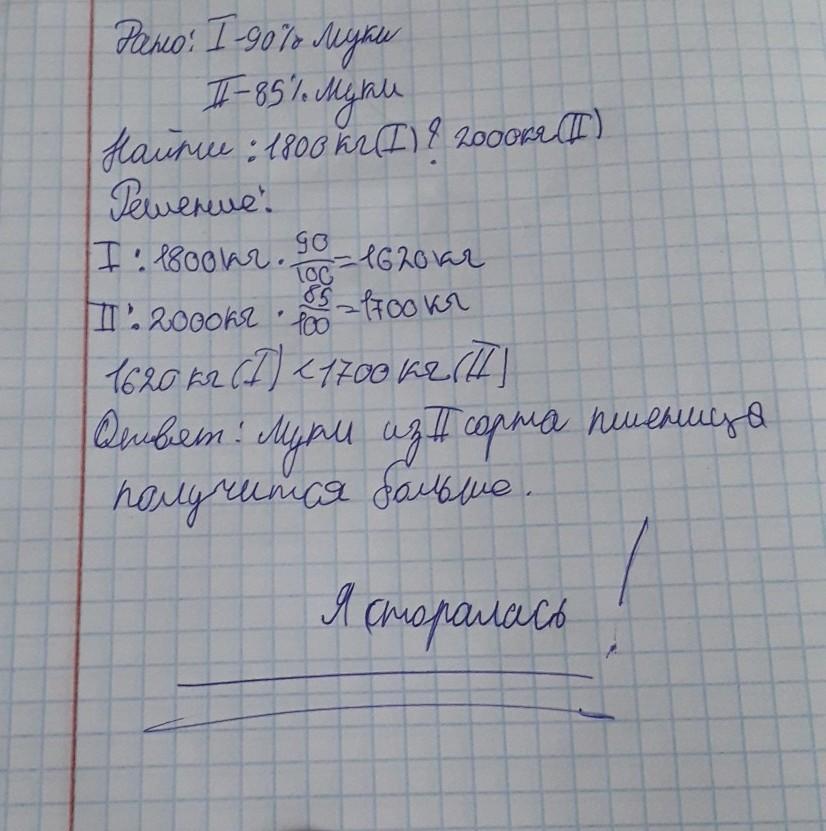 Дано: I-90% муки
II-85% муки
Найти: 1800кг(I)? 2000кг(II)
Решение:
I: 1800кг · 90/100 = 1620кг
II: 2000кг · 85/100 = 1700кг
1620кг(I) < 1700кг(II)
Ответ: муки из II сорта пшеница
получится больше.
Я сторалась!